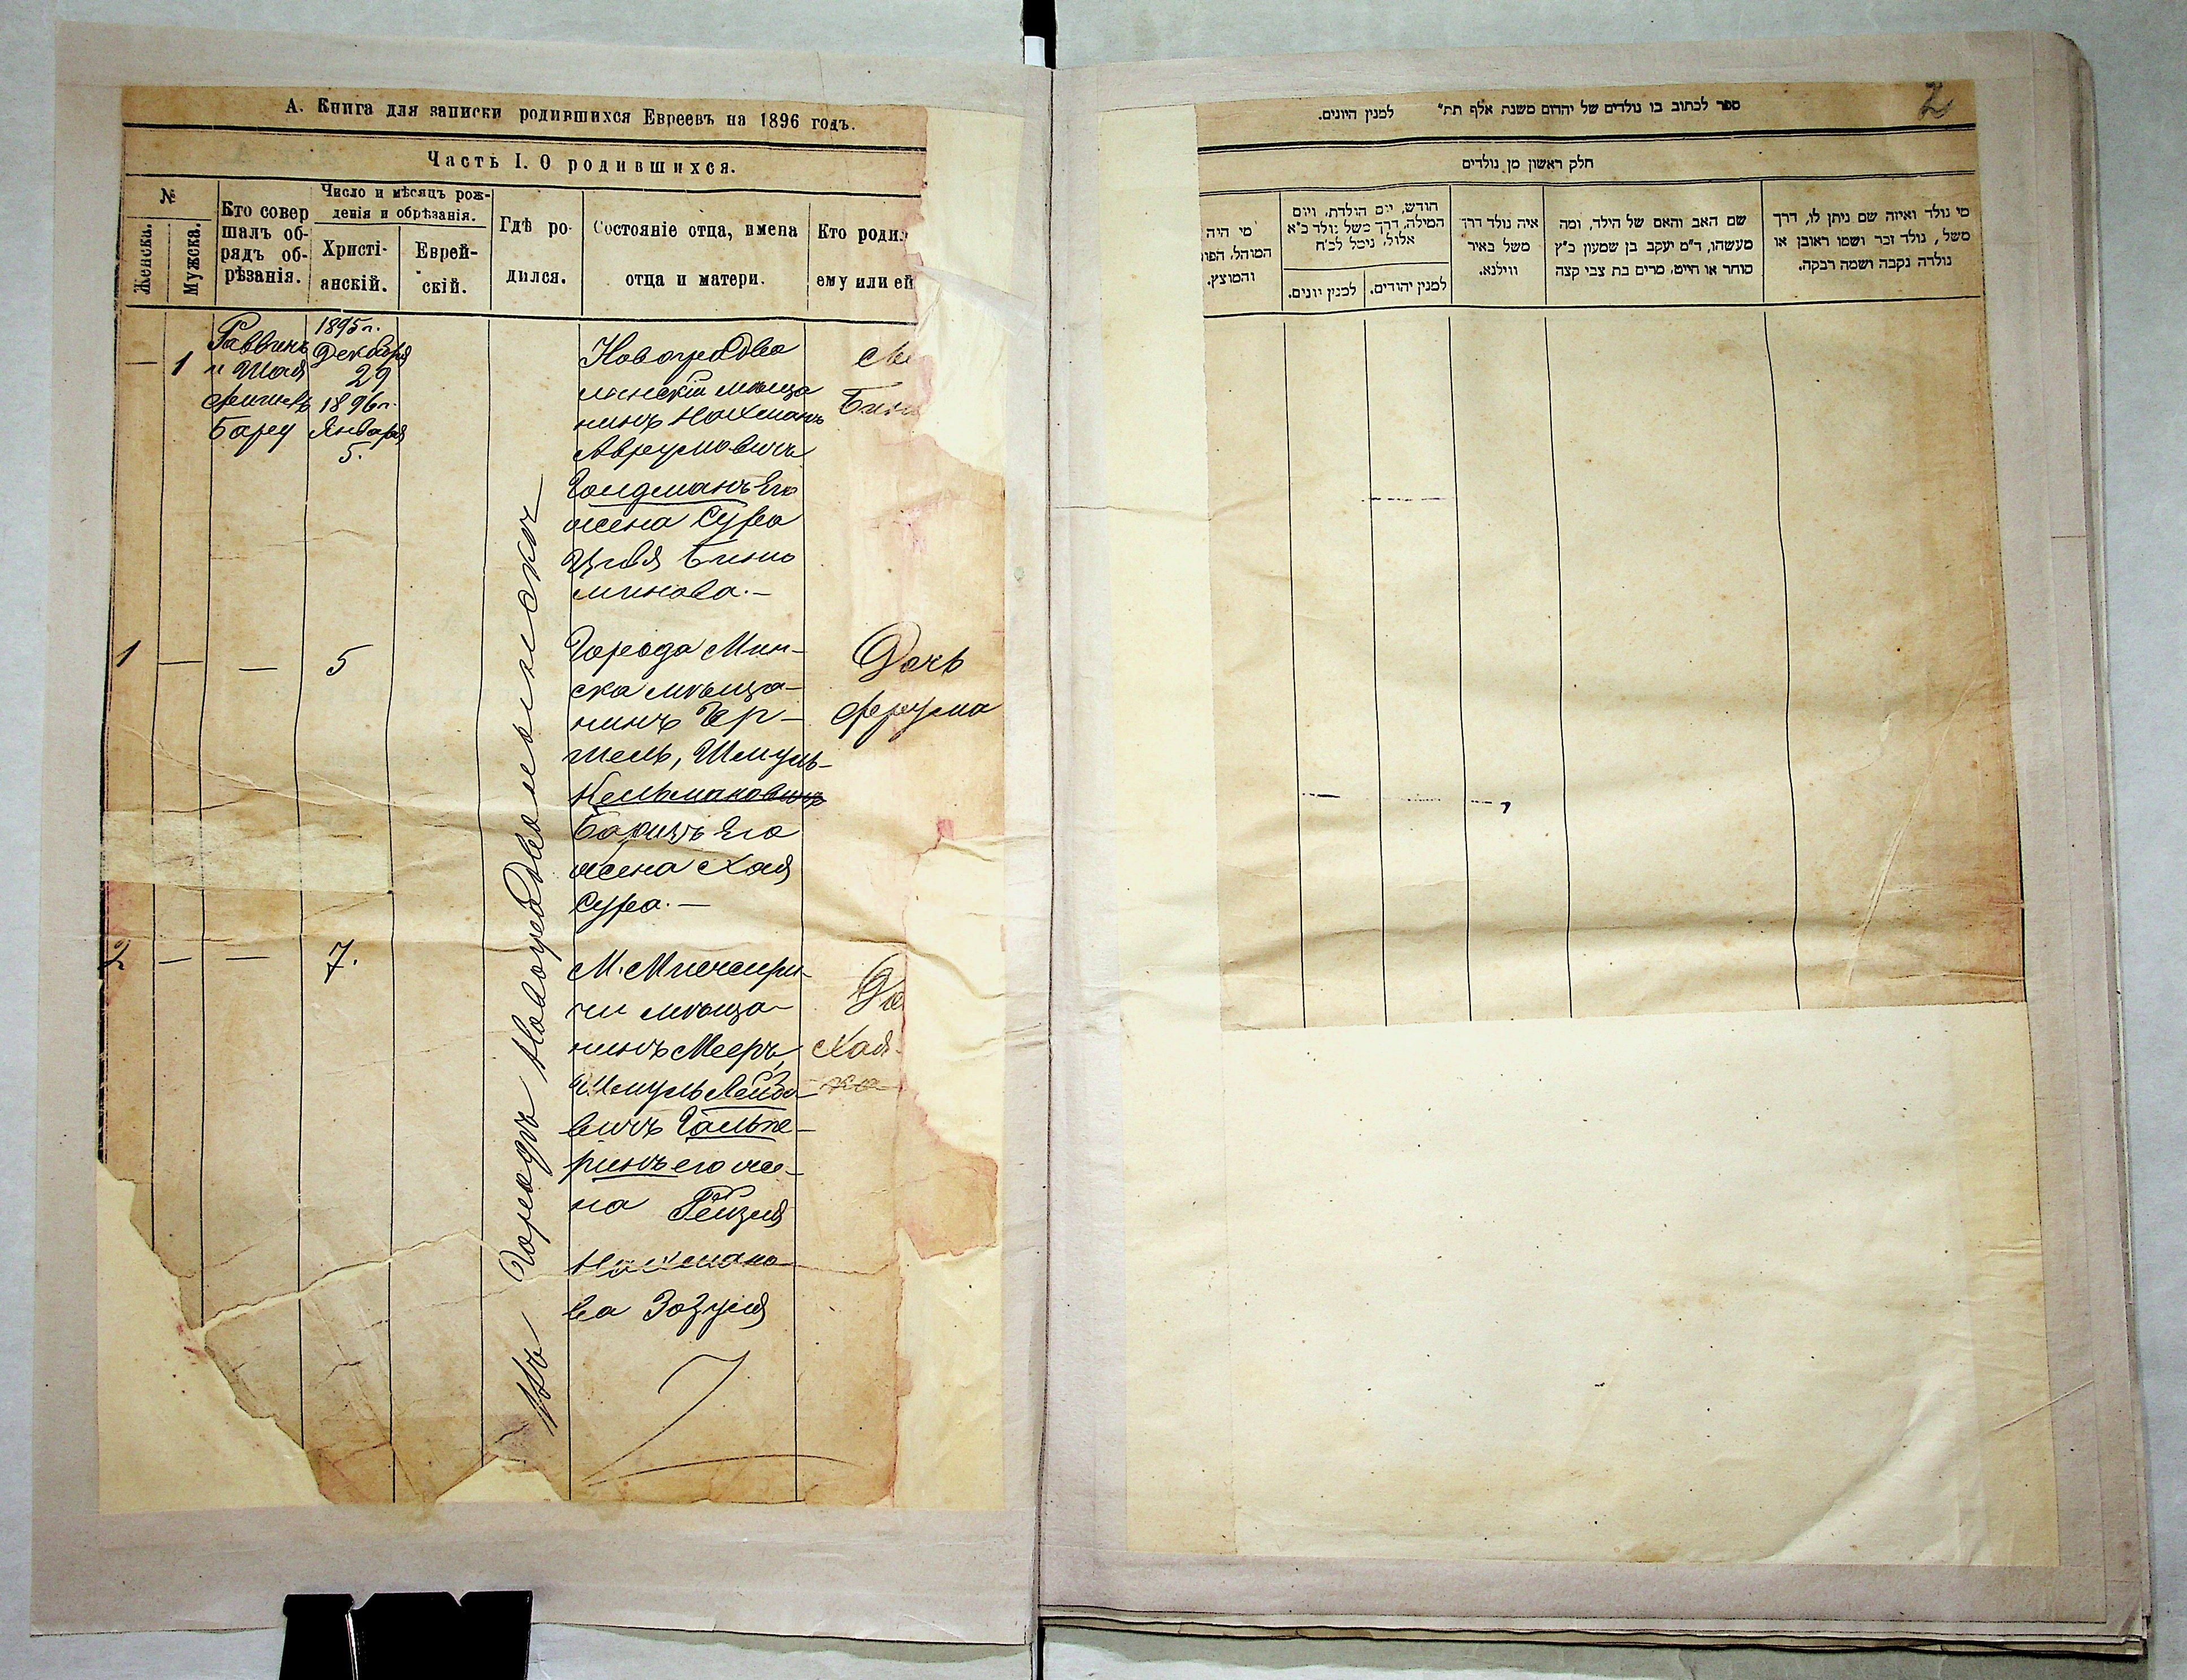 А. Книга для записки родившихся Евреевъ на 1896 годъ.
Часть I. О родившихся.
№
Женска.
Мужска.
Кто совер
шалъ об-
рядъ об-
рѣзанія.
Число и мѣсяцъ рож-
денія и обрѣзанія.
Христі-
анскій.
Еврей-
скій.
Гдѣ ро-
дился.
Состояніе отца, имена
отца и матери.
Кто родил
ему или ей
— 1
Раввинъ
и Шая
Бару
1895 г.
Декабря
29
1896 г.
Января
5.
Въ городѣ Новоградволынскѣ
Новоградво
лынскій мѣща
нинъ Нахманъ
Аврумовичъ
Голдманъ Его
жена Сура
Цивя Бинь
минова.—
1 — — 5
Города Мин-
ска мѣща-
нинъ Гер-
шель, Шмуль-
Кельмановичъ
Его
жена Хая
Сура.—
Дочь
Фрума
2 — — 7.
М.
чи мѣща-
нинъ Мееръ,
Шмуль Лейбо-
вичъ Гальпе-
ринъ его же-
на Рейзя
Нахмано-
ва Зозуля
До
Хая-
2
ספר לכתוב בו נולדים של יהדום משנת אלף תת״ למנין היונים.
חלק ראשון מן נולדים
מי נולד ואיזה שם ניתן לו, דרך
משל, נולד זכר ושמו ראובן או
נולדה נקבה ושמה רבקה.
שם האב והאם של הילד, ומה
מעשהו, ד״מ יעקב בן שמעון כ״ץ
סוחר או חייט, מרים בת צבי קצה
איה נולד דרך
משל באיר
ווילנא.
חודש, יום הולדת, ויום
המילה, דרך משל נולד כ״א
אלול, נימל לכ״ח
למנין יהודים.
למנין יונים.
מי היה
המוהל, הפו
והמוצץ.